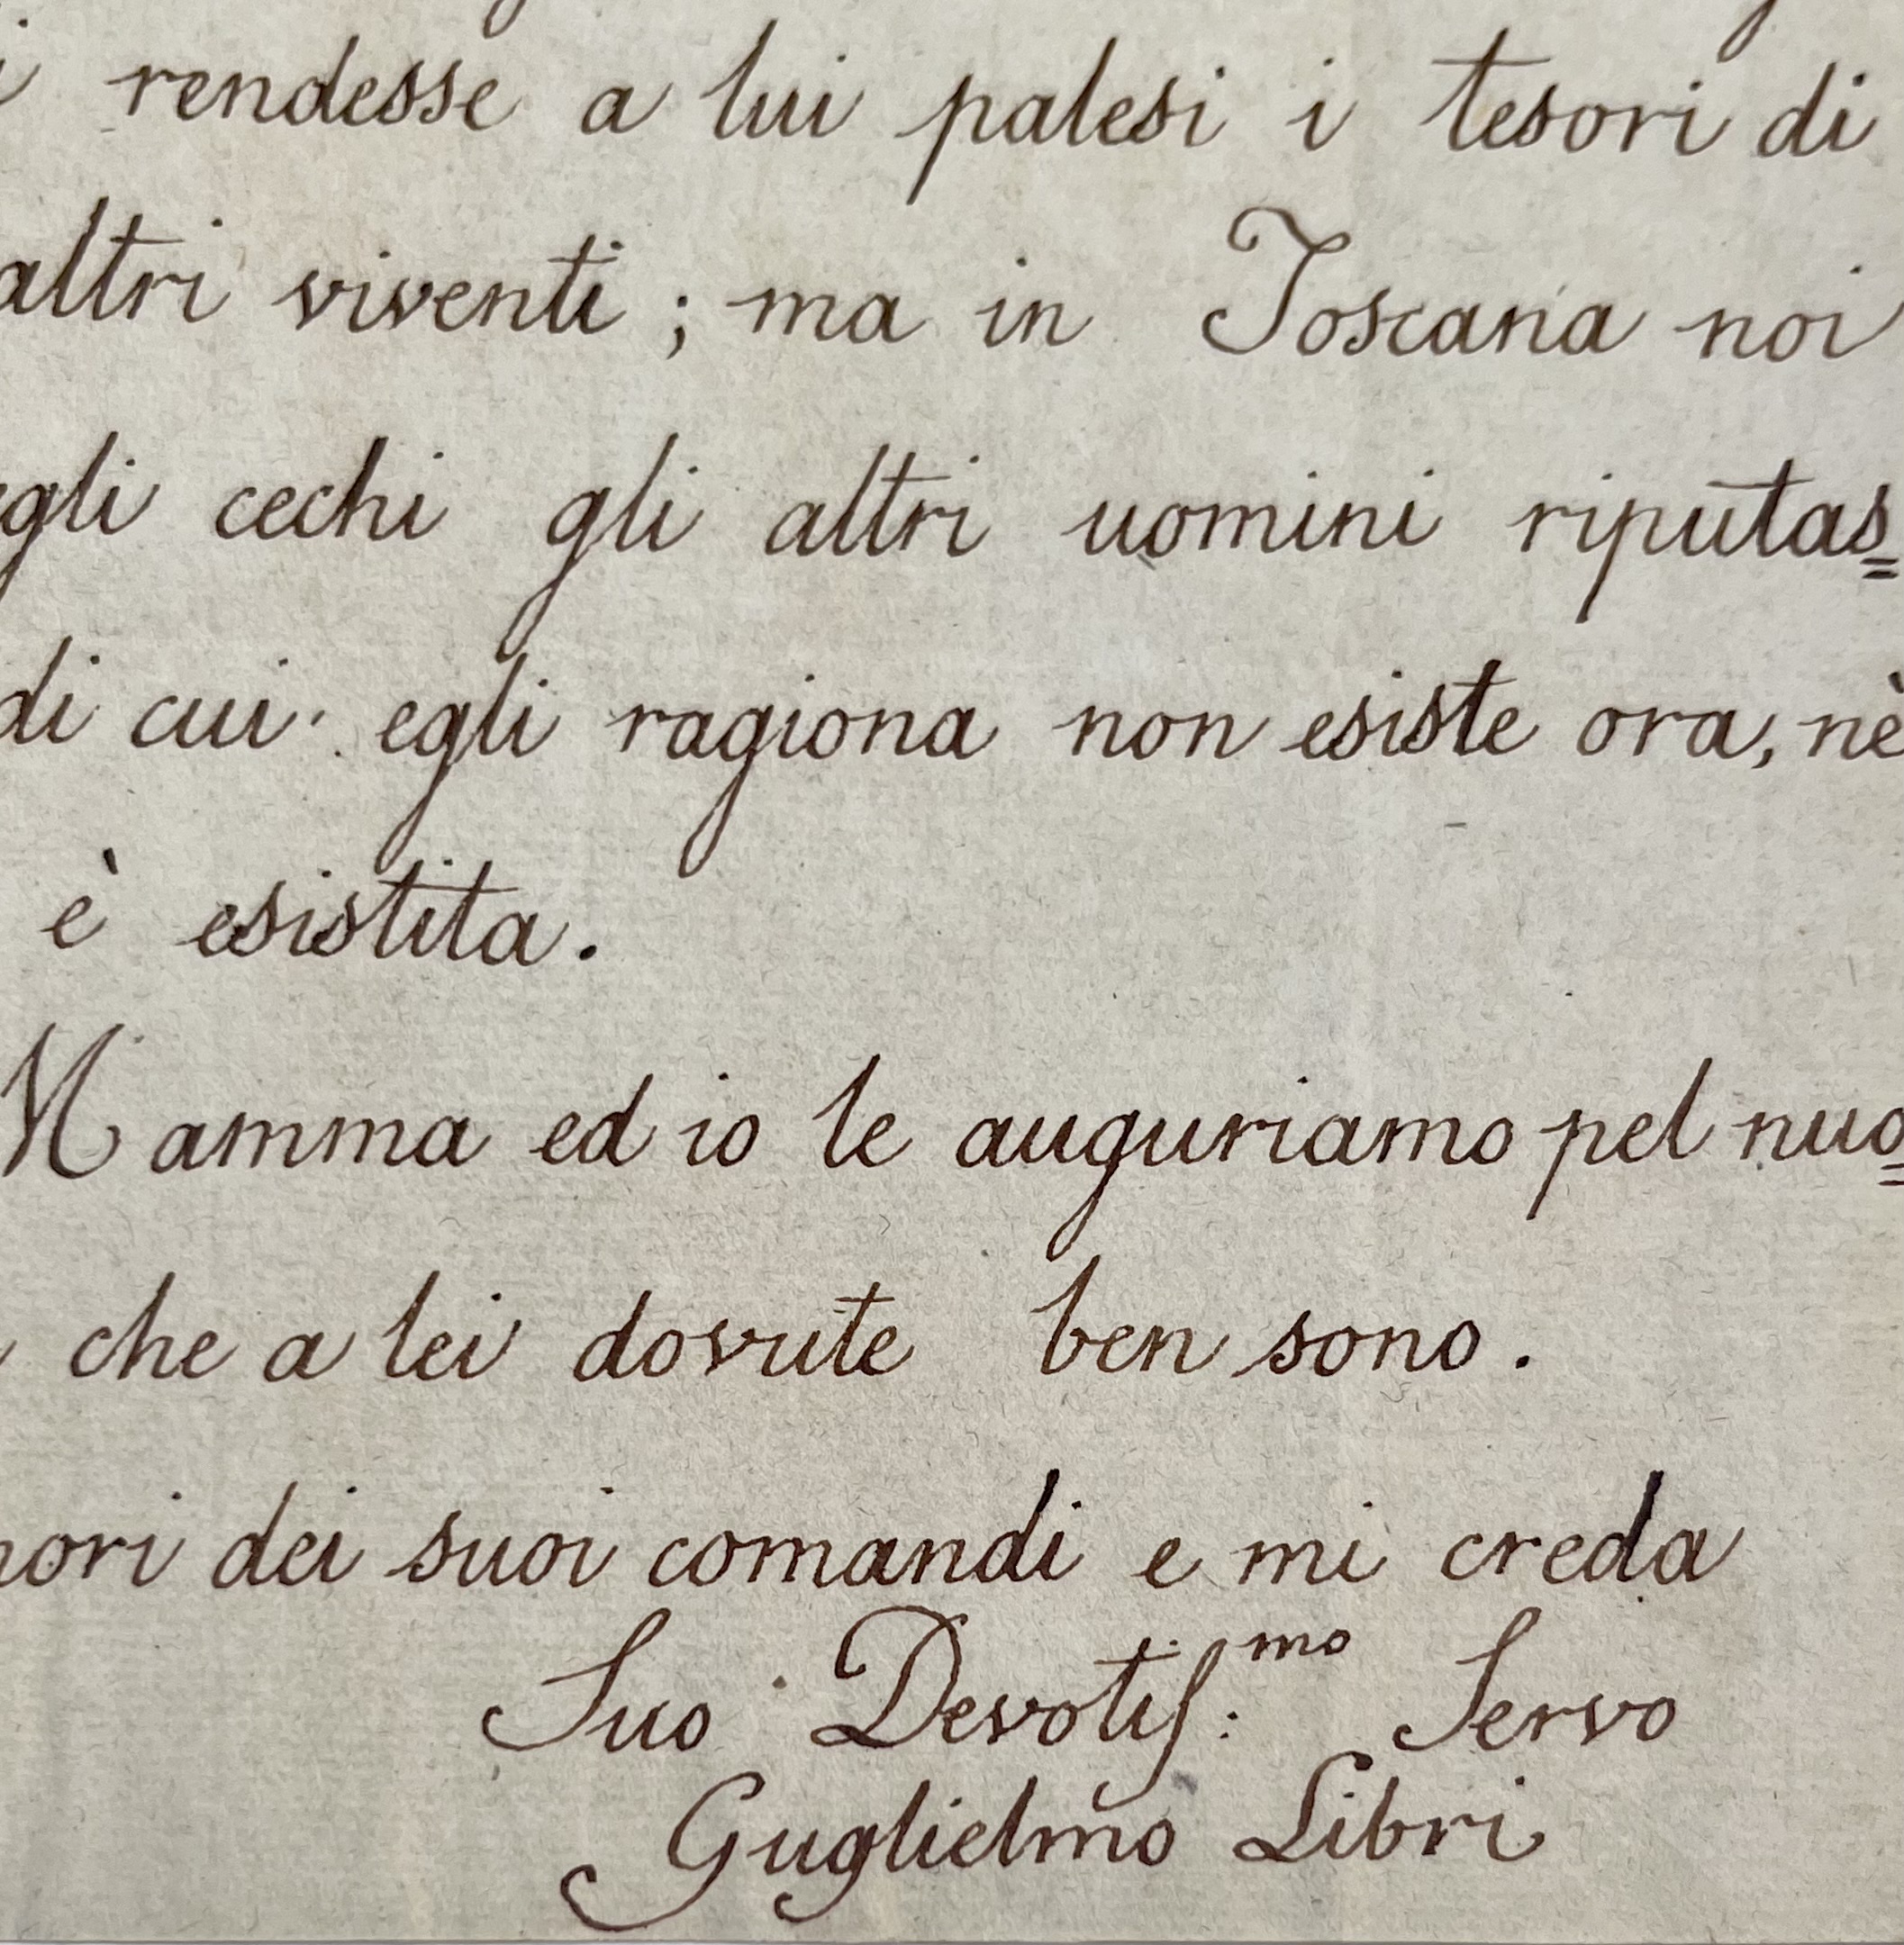 rendesse a lui palesi i tesori di
altri viventi ; ma in Toscana noi
egli cechi gli altri uomini riputas=
di cui egli ragiona non esiste ora, nè
è esistita.
Mamma ed io le auguriamo pel nuo=
che a lei dovute ben sono.
nori dei suoi comandi e mi creda
Suo Devotiſ:mo Servo
Guglielmo Libri